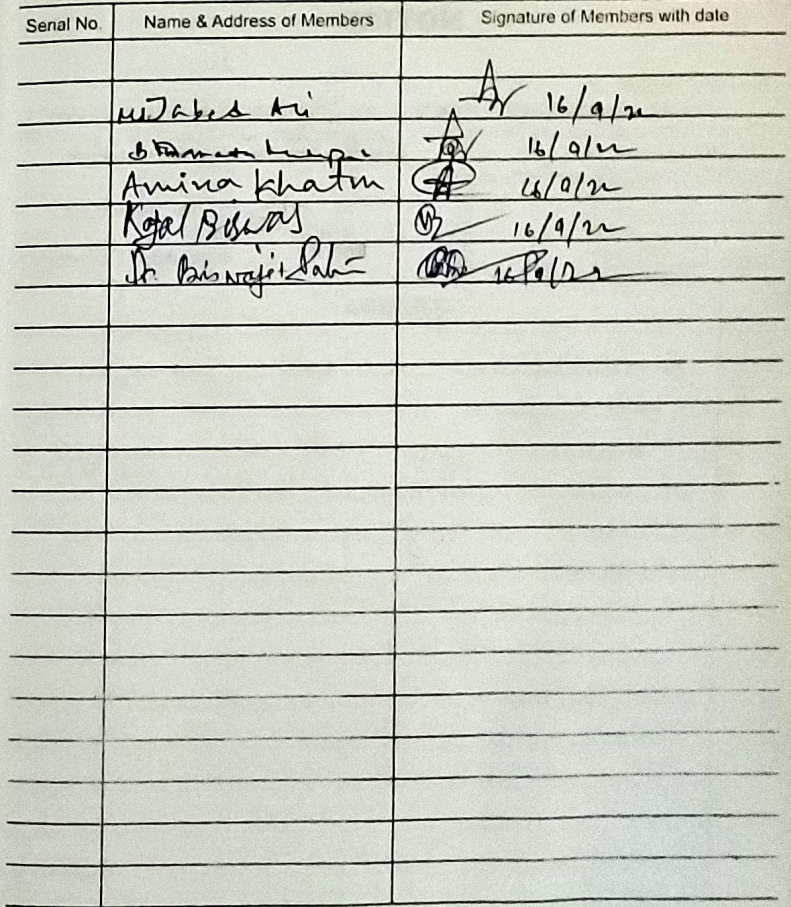 Serial No. Name & Address of Members Signature of Members with date
Md Jabed Ali 16/9/22
16/9/22
Amina Khatun 16/9/22
Kajal Biswas 16/9/22
Dr. Biswajit Saha 16/9/22